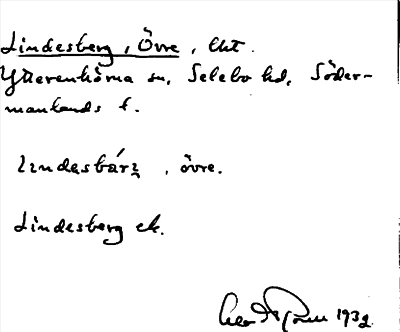 Lindesberg, Övre, lht.
Ytterenhörna sn, Selebo hd, Söder-
manlands l.
, övre.
Lindesberg ek.
1932